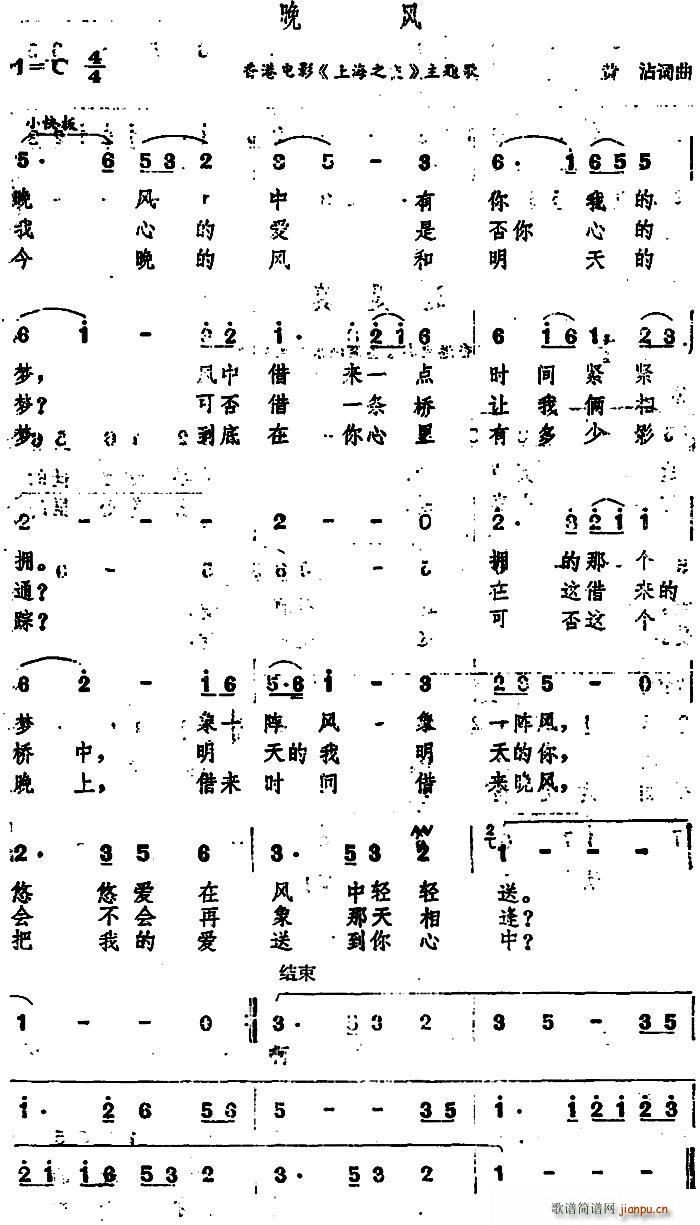 晚 风
1=C 4/4 香港电影《上海之》主题歌 沾词曲
小快板
5· 6 5 3 2 5 - 3 6· 1 6 5 5
晚 风 中 有 你 我 的
我 心 的 爱 是 否 你 心 的
今 晚 的 风 和 明 天 的
6 1 - 2 1· 2 1 6 6 1 6 1, 2 3
梦, 风中 借 来 一 点 时 间 紧 紧
梦? 可否 借 一 条 桥 让 我 俩 相
梦 到底 在 你 心 里 有 多 少 影
2 - - - 2 - - 0 2· 3 2 1 1
拥。 拥 的 那 个
通? 在 这 借 来的
踪? 可 否 这 个
6 2 - 1 6 5·6 1 - 3 2 3 5 - 0
梦 象一 阵 风 象 一阵 风,
桥 中, 明 天的 我 明 天的 你,
晚 上, 借来 时 间 借 来晚 风,
2· 3 5 6 3· 5 3 2 1 - - -
悠 悠 爱 在 风 中 轻 轻 送。
会 不 会 再 象 那 天 相 逢?
把 我 的 爱 送 到 你 心 中?
结束
1 - - 0 3· 5 3 2 3 5 - 3 5
啊
1· 2 6 5 6 5 - - 3 5 1· 1 2 1 2 3
2 1 1 6 5 3 2 3· 5 3 2 1 - - -
歌谱简谱网 jianpu.cn